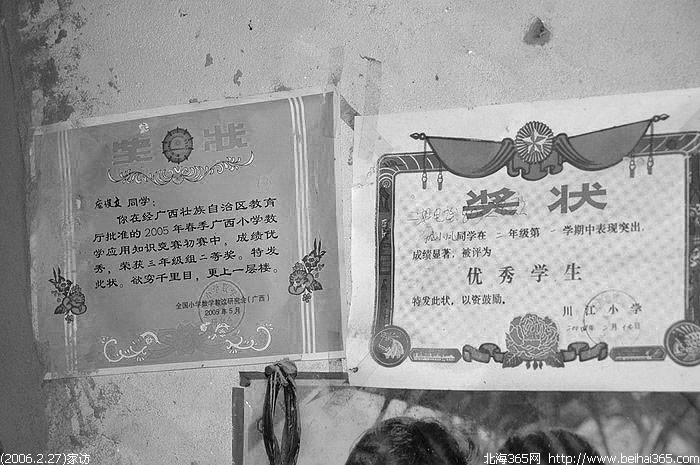 奖状
同学:
你在经广西壮族自治区教育
厅批准的2005年春季广西小学数
学应用知识竞赛初赛中,成绩优
秀,荣获三年级组二等奖。特发
此状。欲穷千里目,更上一层楼。
全国小学数学教改研究会(广西)
2005年5月
奖状
同学在二年级第一学期中表现突出,
成绩显著,被评为
优秀学生
特发此状,以资鼓励。
川江小学
(2006.2.27)家访
北海365网 http://www.beihai365.com